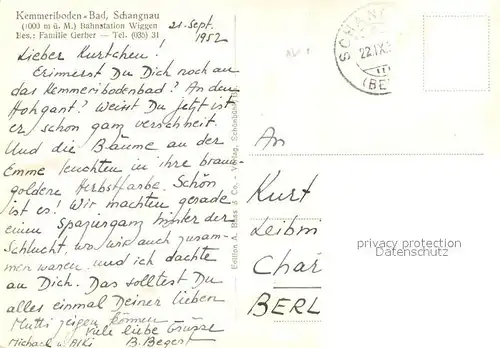 Kemmeriboden-Bad, Schangnau
(1000 m ü. M.) Bahnstation Wiggen
Bes.: Familie Gerber — Tel. (035) 31
21. Sept.
1952
Lieber Kurtchen!
Erinnerst Du Dich noch an
das Kemmeribodenbad? An den
Hohgant? Weisst Du jetzt ist
er schon ganz verschneit.
Und die Bäume an der
Emme leuchten in ihre braun-
goldene Herbstfarbe. Schön
ist es! Wir machten gerade
einen Spaziergang hinter der
Schlucht, wo wir auch zusam-
men waren, und ich dachte
an Dich. Das solltest Du
alles einmal Deiner lieben
Mutti zeigen können
Viele liebe Grüsse
Michael u. B. Begert
Edition A. & Co. - Verlag, Schönbühl
SCHANG
22.IX.5
(BE
An
Kurt
Leibm
Char
BERL
privacy protection
Datenschutz